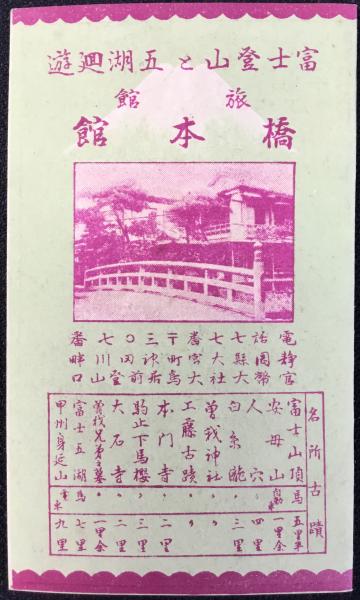 富士登山と五湖廻遊
旅館
橋本館
官幣大社大鳥居前登山口
静岡縣大宮町神田川畔
電話七七番〒三〇七番
名所古蹟
富士山頂 馬 五里半
安母山 自動車 一里余
人穴 〃 四里
白糸瀧 〃 三里
曽我神社 〃 〃
工藤古蹟 〃 〃
本門寺 〃 二里
駒止下馬櫻 〃 三里
大石寺 〃 二里
曽我兄弟之墓 〃 一里余
富士五湖 馬 七里
甲州身延山 電車 九里